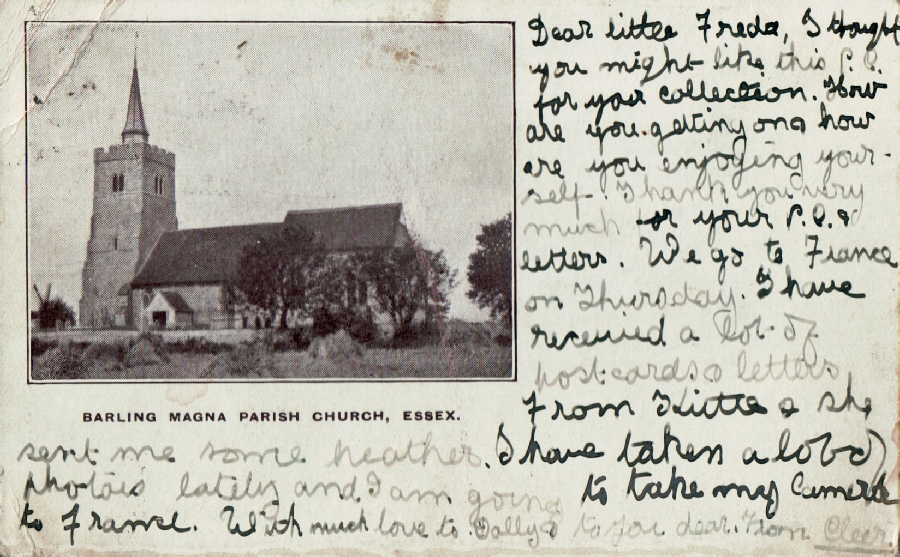 BARLING MAGNA PARISH CHURCH, ESSEX.
Dear little Freda, I thought
you might like this P.C.
for your collection. How
are you getting on & how
are you enjoying your-
self. Thank you very
much for your P.C. &
letters. We go to France
on Thursday. I have
received a lot of
postcards & letters
From Kittee & she
sent me some heather. I have taken a lot of
photos lately and I am going to take my Camera
to France. With much love to Dolly & to you dear. From